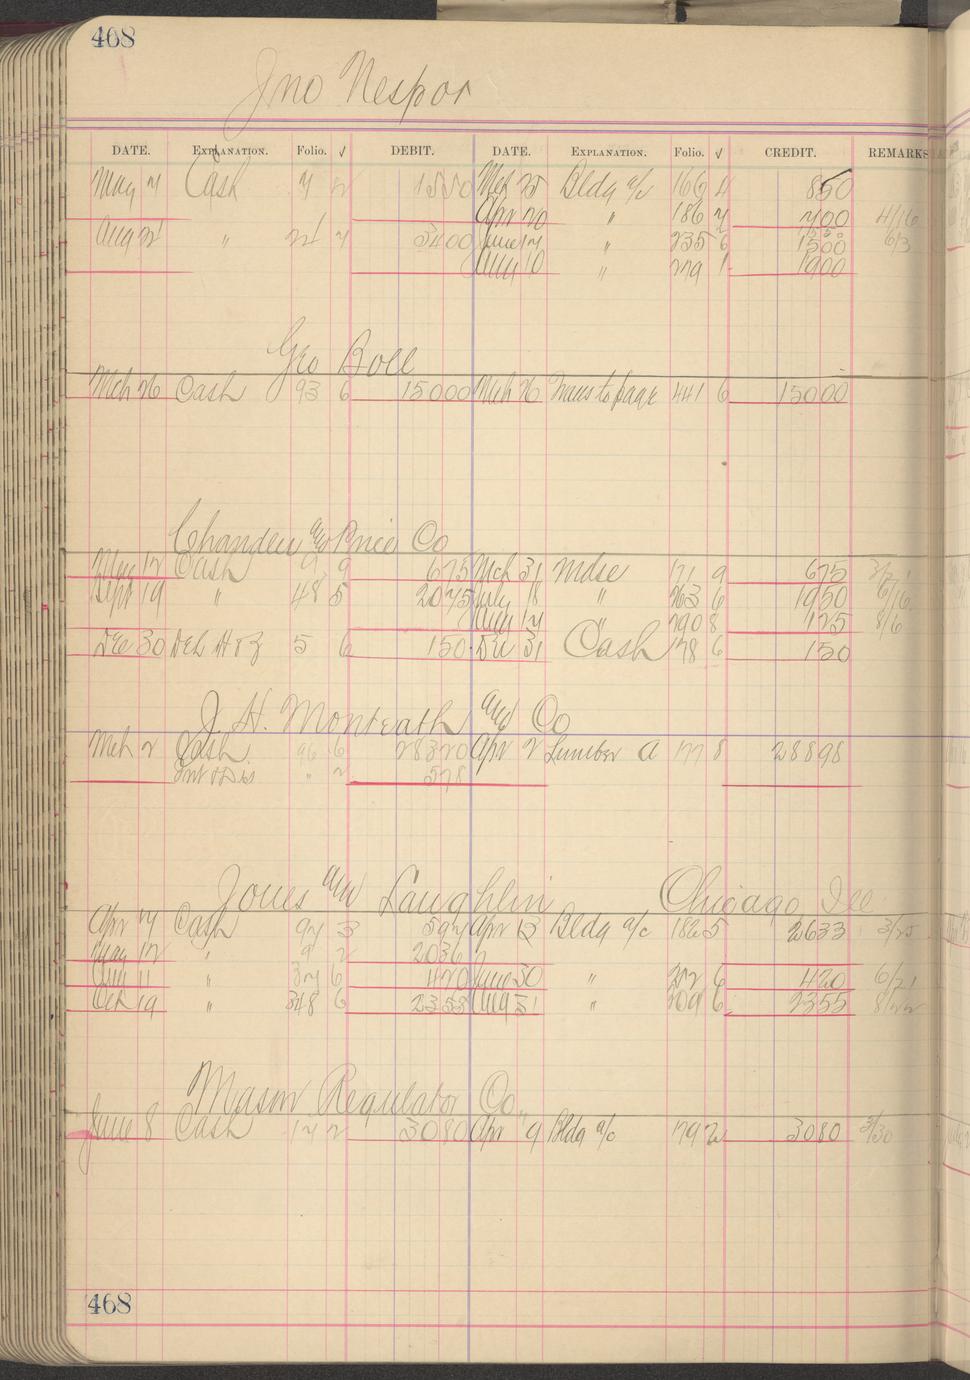 468
Jno Nespor
DATE. EXPLANATION. Folio. √ DEBIT. DATE. EXPLANATION. Folio. √ CREDIT. REMARKS
May 7 Cash 7 2 1550 Mch 25 Bldg a/c 166 4 850
Apr 20 " 186 7 700 4/16
1550
Aug 21 " 21 7 3400 June 17 " 235 6 1500 6/3
Aug 10 " 279 1 1900
Geo Boll
Mch 26 Cash 93 6 15000 Mch 26 Trans to page 441 6 15000
Chandler and Price Co
May 12 Cash 9 9 675 Mch 31 Mdse 171 9 675
Sept 19 " 48 5 2075 July 18 " 263 6 1950 6/16
Aug 17 " 290 8 125 8/6
Dec 30 5 6 150 Dec 31 Cash 178 6 150
J. H. Monteath and Co
Mch 2 Cash 96 6 28320 Apr 2 Lumber A 177 8 28898
Int & Dis " 2 578
Jones and Laughlin Chicago Ill
Apr 17 Cash 97 3 597 Apr 13 Bldg a/c 182 5 2633 3/25
May 12 " 9 2 2036
July 11 " 37 6 420 June 30 " 252 6 420 6/21
Oct 19 " 348 6 2355 Aug 31 " 309 6 2355 8/22
Mason Regulator Co.
June 8 Cash 17 2 3080 Apr 9 Bldg a/c 179 2 3080 3/30
468